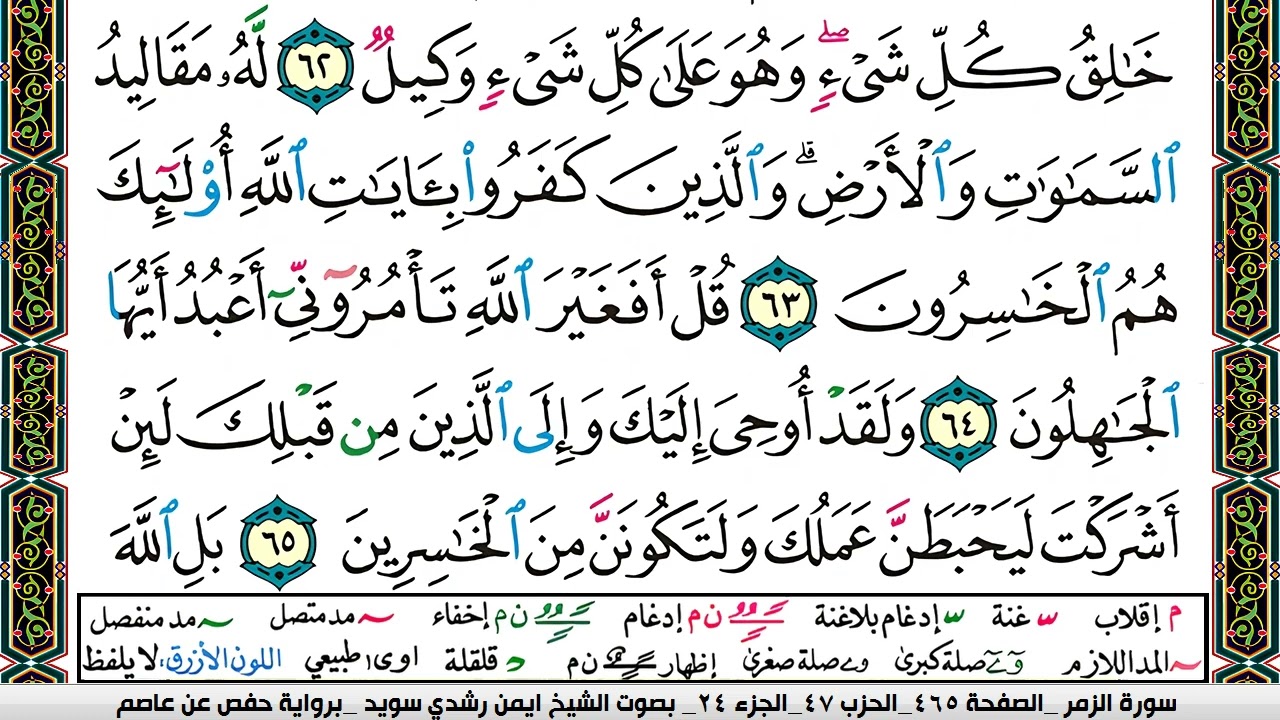 خَٰلِقُ كُلِّ شَىْءٍۖ وَهُوَ عَلَىٰ كُلِّ شَىْءٍ وَكِيلٌ ٦٢ لَّهُۥ مَقَالِيدُ
ٱلسَّمَٰوَٰتِ وَٱلْأَرْضِۗ وَٱلَّذِينَ كَفَرُوا۟ بِـَٔايَٰتِ ٱللَّهِ أُو۟لَٰٓئِكَ
هُمُ ٱلْخَٰسِرُونَ ٦٣ قُلْ أَفَغَيْرَ ٱللَّهِ تَأْمُرُوٓنِّىٓ أَعْبُدُ أَيُّهَا
ٱلْجَٰهِلُونَ ٦٤ وَلَقَدْ أُوحِىَ إِلَيْكَ وَإِلَى ٱلَّذِينَ مِن قَبْلِكَ لَئِنْ
أَشْرَكْتَ لَيَحْبَطَنَّ عَمَلُكَ وَلَتَكُونَنَّ مِنَ ٱلْخَٰسِرِينَ ٦٥ بَلِ ٱللَّهَ
م إقلاب غنة إدغام بلاغنة ن م إدغام ن م إخفاء مد متصل مد منفصل
المد اللازم صلة كبرىٰ صلة صغرىٰ إظهار ن م قلقلة اوى طبيعي اللون الأزرق، لا يلفظ
سورة الزمر _الصفحة ٤٦٥_الحزب ٤٧_الجزء ٢٤_ بصوت الشيخ ايمن رشدي سويد _برواية حفص عن عاصم